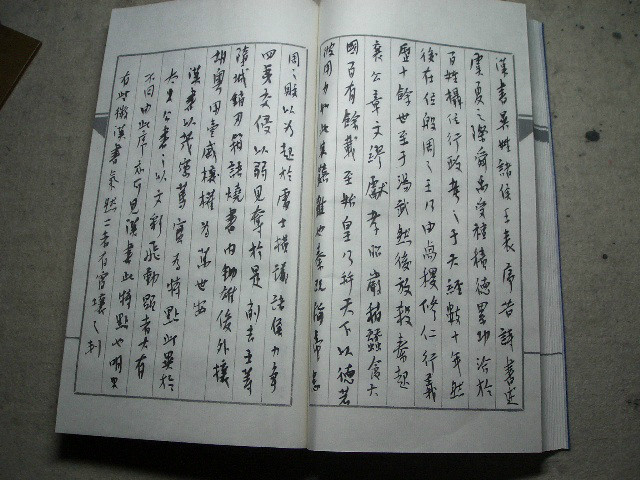 漢書異姓諸侯王表序昔詩書述
虞夏之際舜禹受禪積德累功洽於
百姓攝位行政考之于天經數十年然
後在位殷周之王乃由卨稷修仁行義
歷十餘世至于湯武然後放殺秦起
襄公章文繆獻孝昭嚴稍蠶食六
國百有餘載至始皇乃并天下以德若
彼用力如此其艱難也秦既稱帝患
周之敗以為起於處士橫議諸侯力爭
四夷交侵以弱見奪於是削去五等
墮城銷刃箝語燒書內鋤雄俊外攘
胡粵用壹威權為萬世安
漢書以茂密實為特點此異於
太史公書之以文彩飛動顯者大有
不同由此序亦可見漢書此特點也明史
有些微漢書氣然二者有霄壤之別